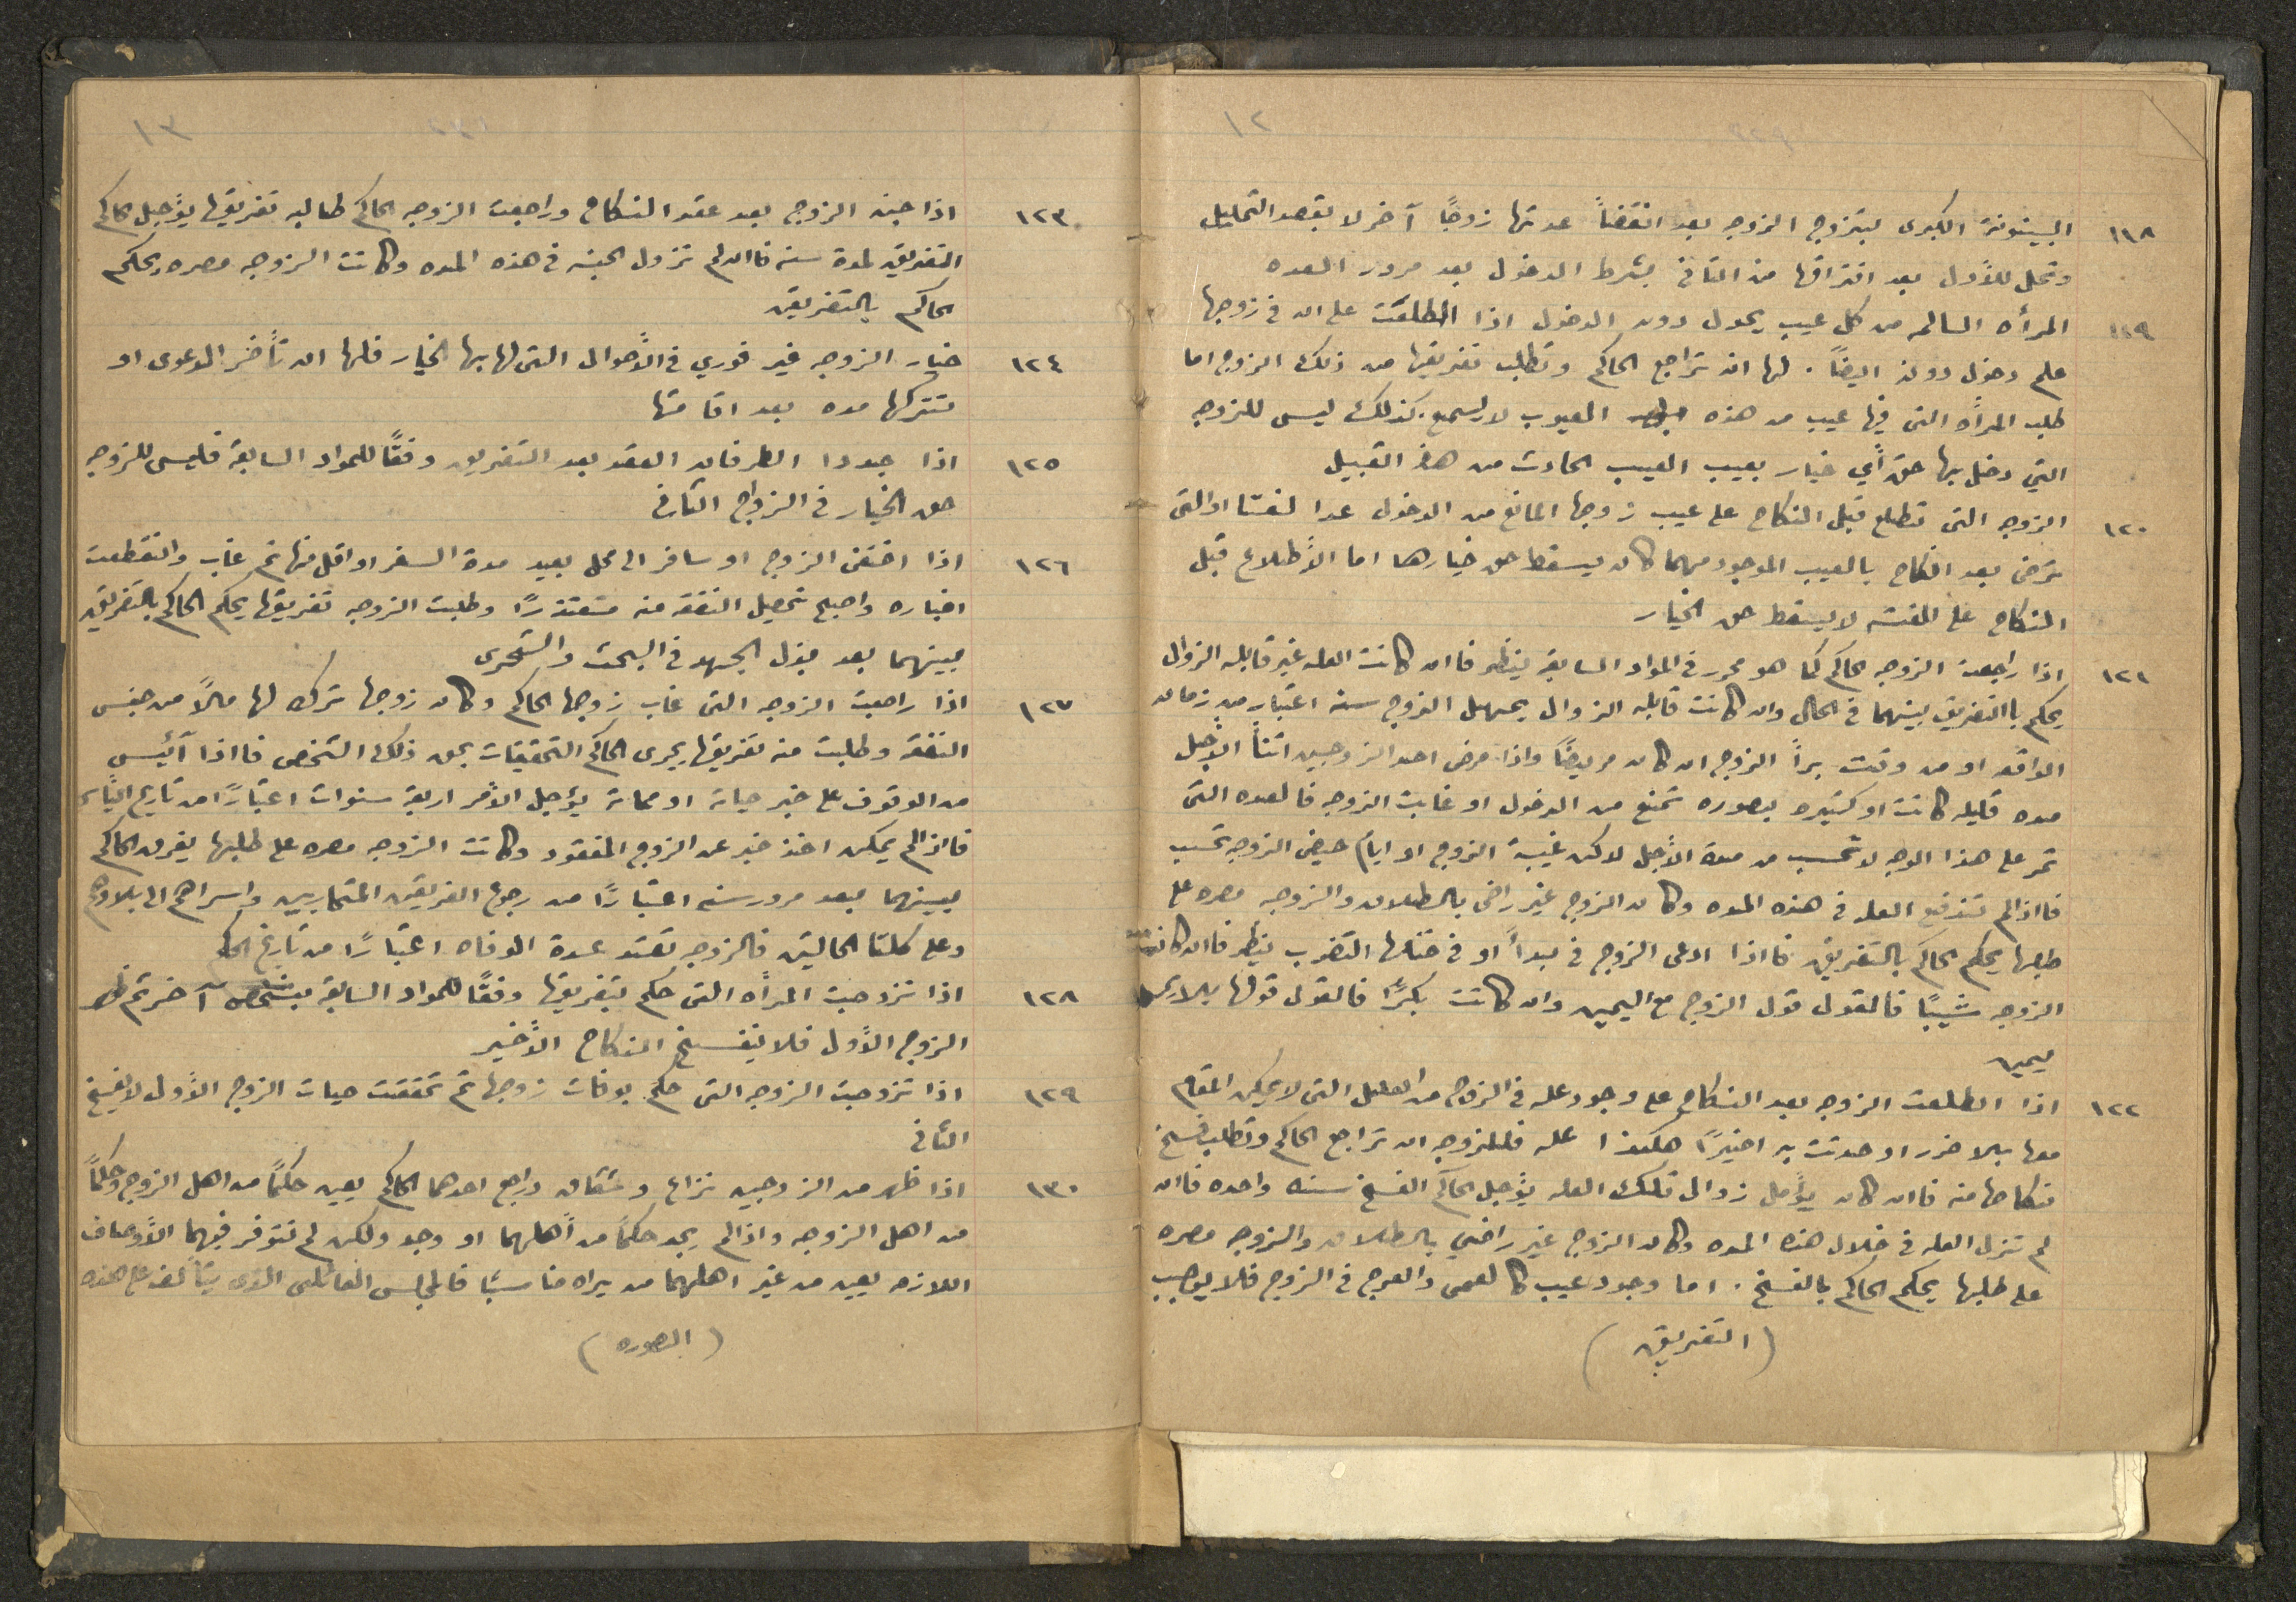 ١٢
١١٨ البينونة الكبرى بتزوج الزوجه بعد انقضاً عدتها زوجًا آخر لا بقصد التحليل
وتحل للأول بعد افتراقها من الثانى بشرط الدخول بعد مرور العده
١١٩ المرأه السالمه من كل عيب يحول دون الدخول اذا اطلعت على ان فى زوجها
علم دخول دونه ايضاً . لها ان تراجع الحاكم وتطلب تفريقها من ذلك الزوج اما
طلب المرأه التى فيها عيب من هذه العيوب لا يسمع. كذلك ليس للزوجه
التي دخل بها حق أي خيار بعيب العيب الحادث من هذا القبيل
١٢٠ الزوجه التى تطلع قبل النكاح على عيب زوجها المانع من الدخول عدا لعنتا او التى
ترضى بعد النكاح بالعيب الموجود مهما كان يسقط حق خيارها اما الأطلاع قبل
النكاح على العنه لا يسقط حق الخيار
١٢١ اذا راجعت الزوجه الحاكم كما هو محرر فى المواد السابقه ينظر فاان كانت العله غير قابله الزوال
يحكم باالتفريق بينهما فى الحال وان كانت قابله الزوال يمهل الزوج سنه اعتبار من زمان
الواقعه او من وقت برأ الزوج ان كان مريضًا واذا مرض احد الزوجين اثنأ الأجل
مده قليله كانت او كثيره بصوره تمنع من الدخول او غابت الزوجه فالمده التى
تمر على هذا الوجه لا تحسب من مدة الأجل لاكن غيبة الزوج او ايام حيض الزوجه تحسب
فااذا لم تندفع العله فى هذه المده وكان الزوج غير راضى بالطلاق والزوجه مصره على
طلبها يحكم الحاكم بالتفريق فااذا ادعى الزوج فى مبدأ او فى ختامها التقرب ينظر فاان كانت
الزوجه شيبًا فالقول قول الزوج مع اليمين وان كانت بكرًا فالقول قولها بلا
يمين
١٢٢ اذا اطلعت الزوجه بعد النكاح على وجود عله فى الزوج من العلل التى لا يمكن المقام
معها بلا ضرر او حدثت به اخيرًا هكذا عله فللزوجه ان تراجع الحاكم وتطلب فسخ
نكاحها منه فاان كان يؤمل زوال تلك العله يؤجل الحاكم الفسخ سنه واحده فاان
لم تزل العله فى خلال هذه المده وكان الزوج غير راضي بالطلاق والزوجه مصره
على طلبها يحكم الحاكم بالفسخ . اما وجود عيب كالعمى والعرج فى الزوج فلا يوجب
( التفريق )
١٣
١٢٣ اذا جن الزوج بعد عقد النكاح وراجعت الزوجه الحاكم طالبه تفريقها يؤجل الحاكم
التفريق لمدة سنه فاان لم تزول الجنه فى هذه المده وكانت الزوجه مصره يحكم
الحاكم بالتفريق
١٢٤ خيار الزوجه غير فوري فى الأحوال التى لها بها الخيار فلها ان تأخر الدعوى او
تتركها مده بعد اقامتها
١٢٥ اذا جددا الطرفان العقد بعد التفريق وفقًا للمواد السابقه فليس للزوجه
حق الخيار فى الزواج الثانى
١٢٦ اذا اختفى الزوج او سافر الى محل بعيد مدة السفر او اقل منها ثم غاب وانقطعت
اخباره واصبح تحصيل النفقه منه متعذرًا وطلبت الزوجه تفريقها يحكم الحاكم بالتفريق
بينهما بعد بذل الجهد فى البحث والتحرى
١٢٧ اذا راجعت الزوجه التى غاب زوجها الحاكم وكان زوجها ترك لها مالًا من جنس
النفقه وطلبت منه تفريقها يجرى الحاكم التحقيقات بحق ذلك الشخص فااذا آئيس
من الوقوف على خبر حياته او مماته يؤجل الأمر اربعة سنوات اعتبارًا من تاريخ اليأس
فااذا لم يمكن اخذ خبر عن الزوج المفقود وكانت الزوجه مصره على طلبها يفرق الحاكم
بينهما بعد مرور سنه اعتبارًا من رجوع الفريقين المتحاربين واسراهم الى بلادهم
وعلى كلتا الحالتين فالزوجه تعتد عدة الوفاه اعتبارًا من تاريخ الحكم
١٢٨ اذا تزوجت المرأه التى حكم بتفريقها وفقًا للمواد السابقه بشخص آخر ثم ظهر
الزوج الأول فلا ينفسخ النكاح الأخير
١٢٩ اذا تزوجت الزوجه التى حكم بوفات زوجها ثم تحققت حيات الزوج الأول لا يفسخ
الثانى
١٣٠ اذا ظهر من الزوجين نزاع وشقاق وراجع احدهما الحاكم يعين حكمًا من اهل الزوج وحكمًا
من اهل الزوجه واذا لم يجد حكمًا من أهلهما او وجد ولكن لم تتوفر فيهما الأوصاف
اللازمه يعين من غير اهلهما من يراه مناسبًا فالمجلس العائلى الذى يتألف على هذه
( الصوره )